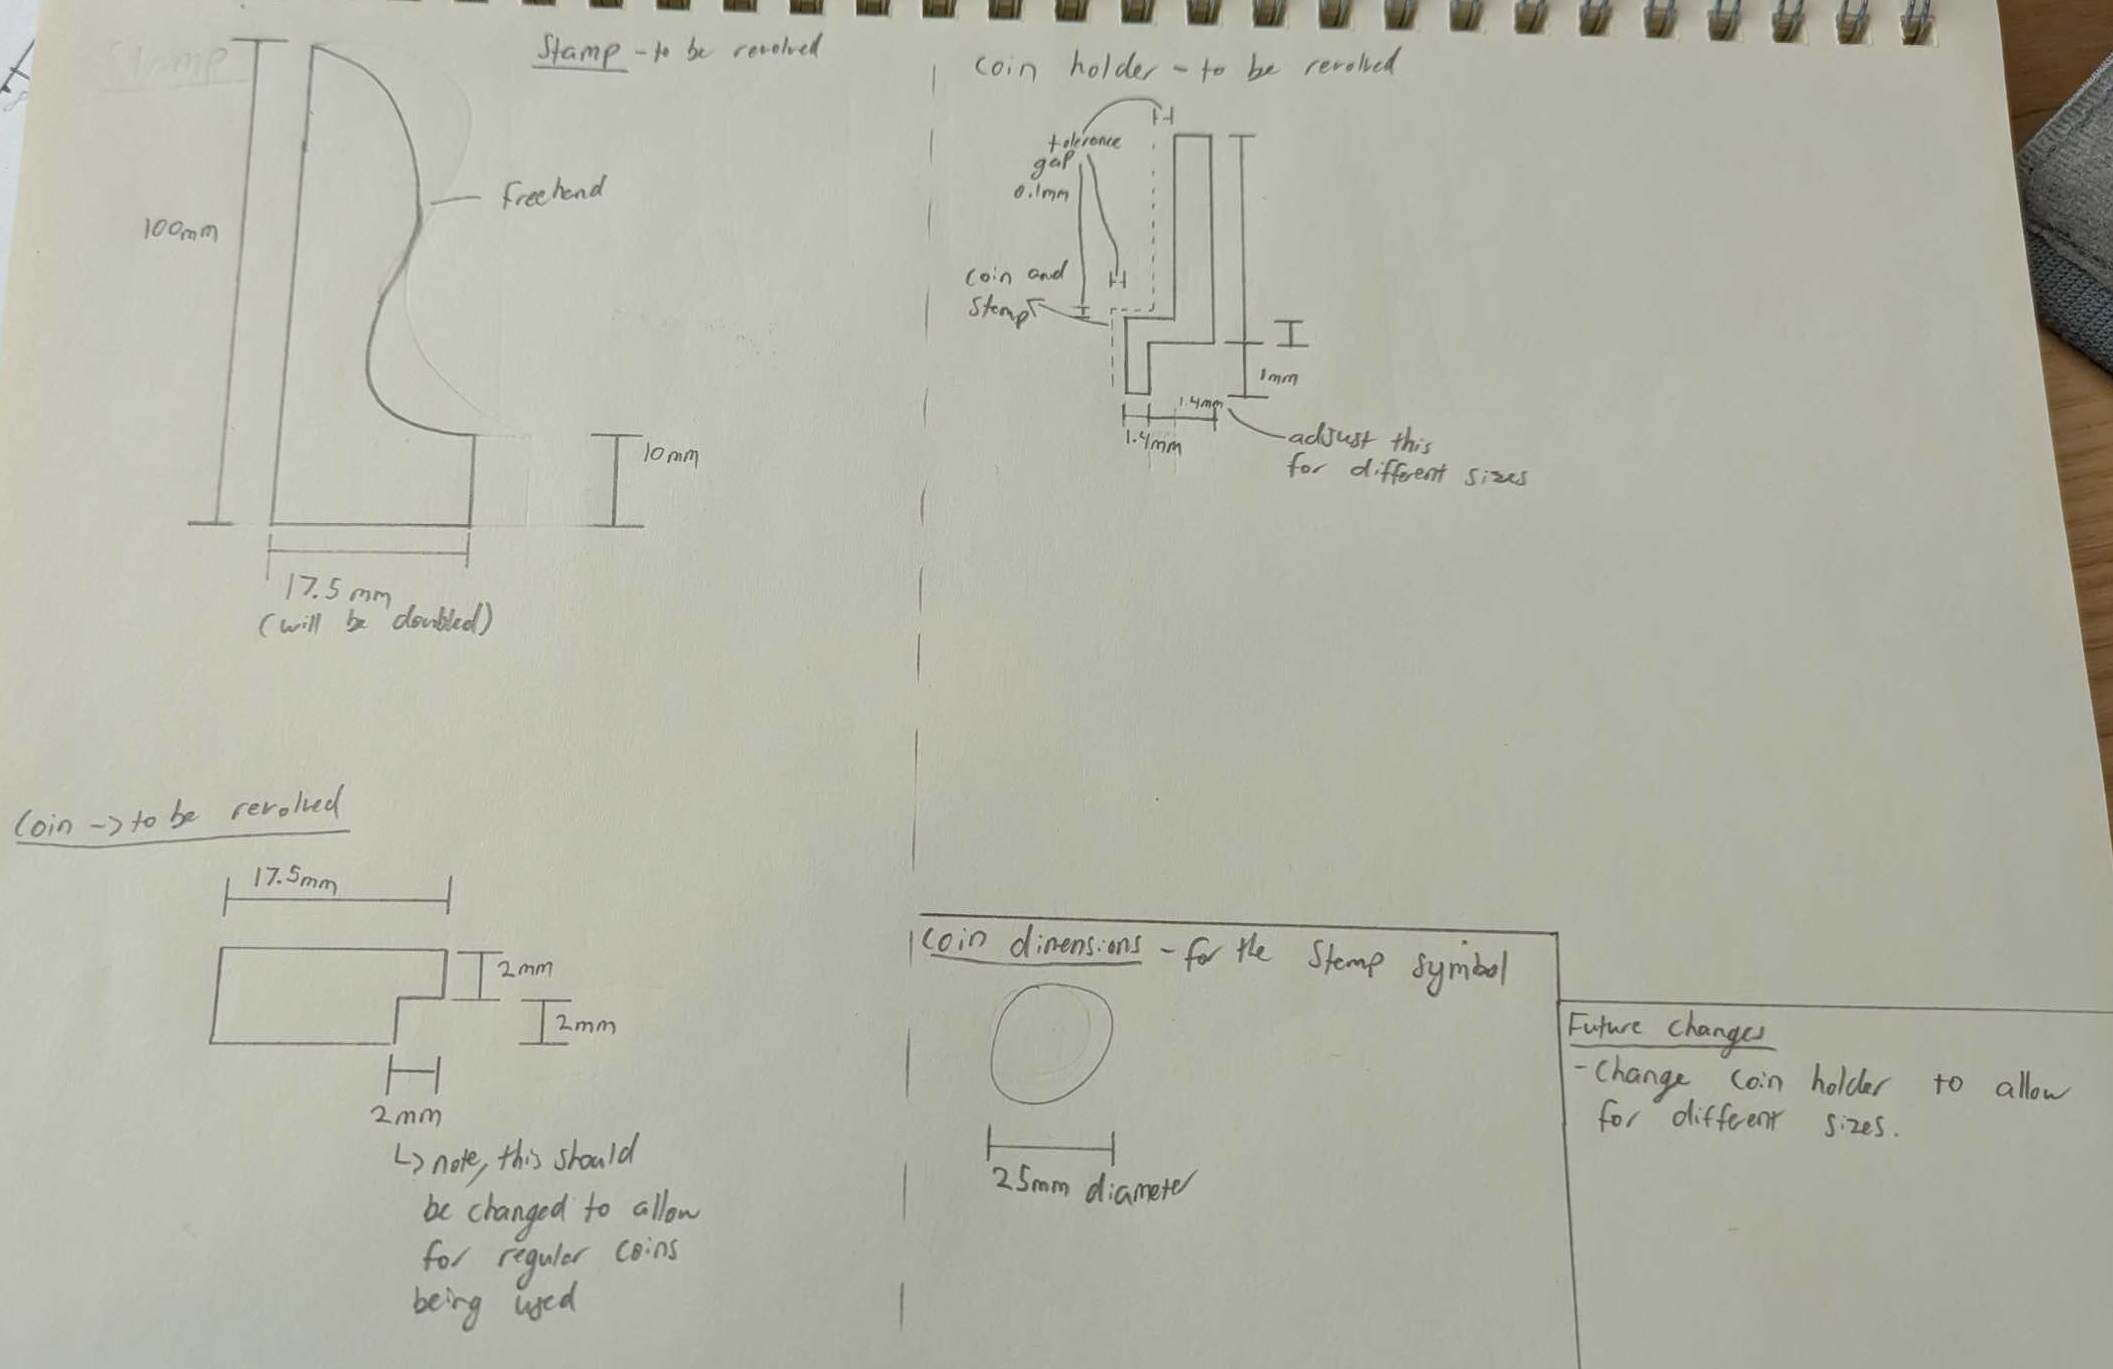 Stamp
Stamp - to be revolved
100mm
Freehand
10mm
17.5mm
(will be doubled)
coin holder - to be revolved
tolerance
gap
0.1mm
coin and
Stamp
1mm
1.4mm
1.4mm
adjust this
for different sizes
Coin -> to be revolved
17.5mm
2mm
2mm
2mm
↳ note, this should
be changed to allow
for regular coins
being used
Coin dimensions - for the Stamp symbol
25mm diameter
Future changes
- Change coin holder to allow
for different sizes.